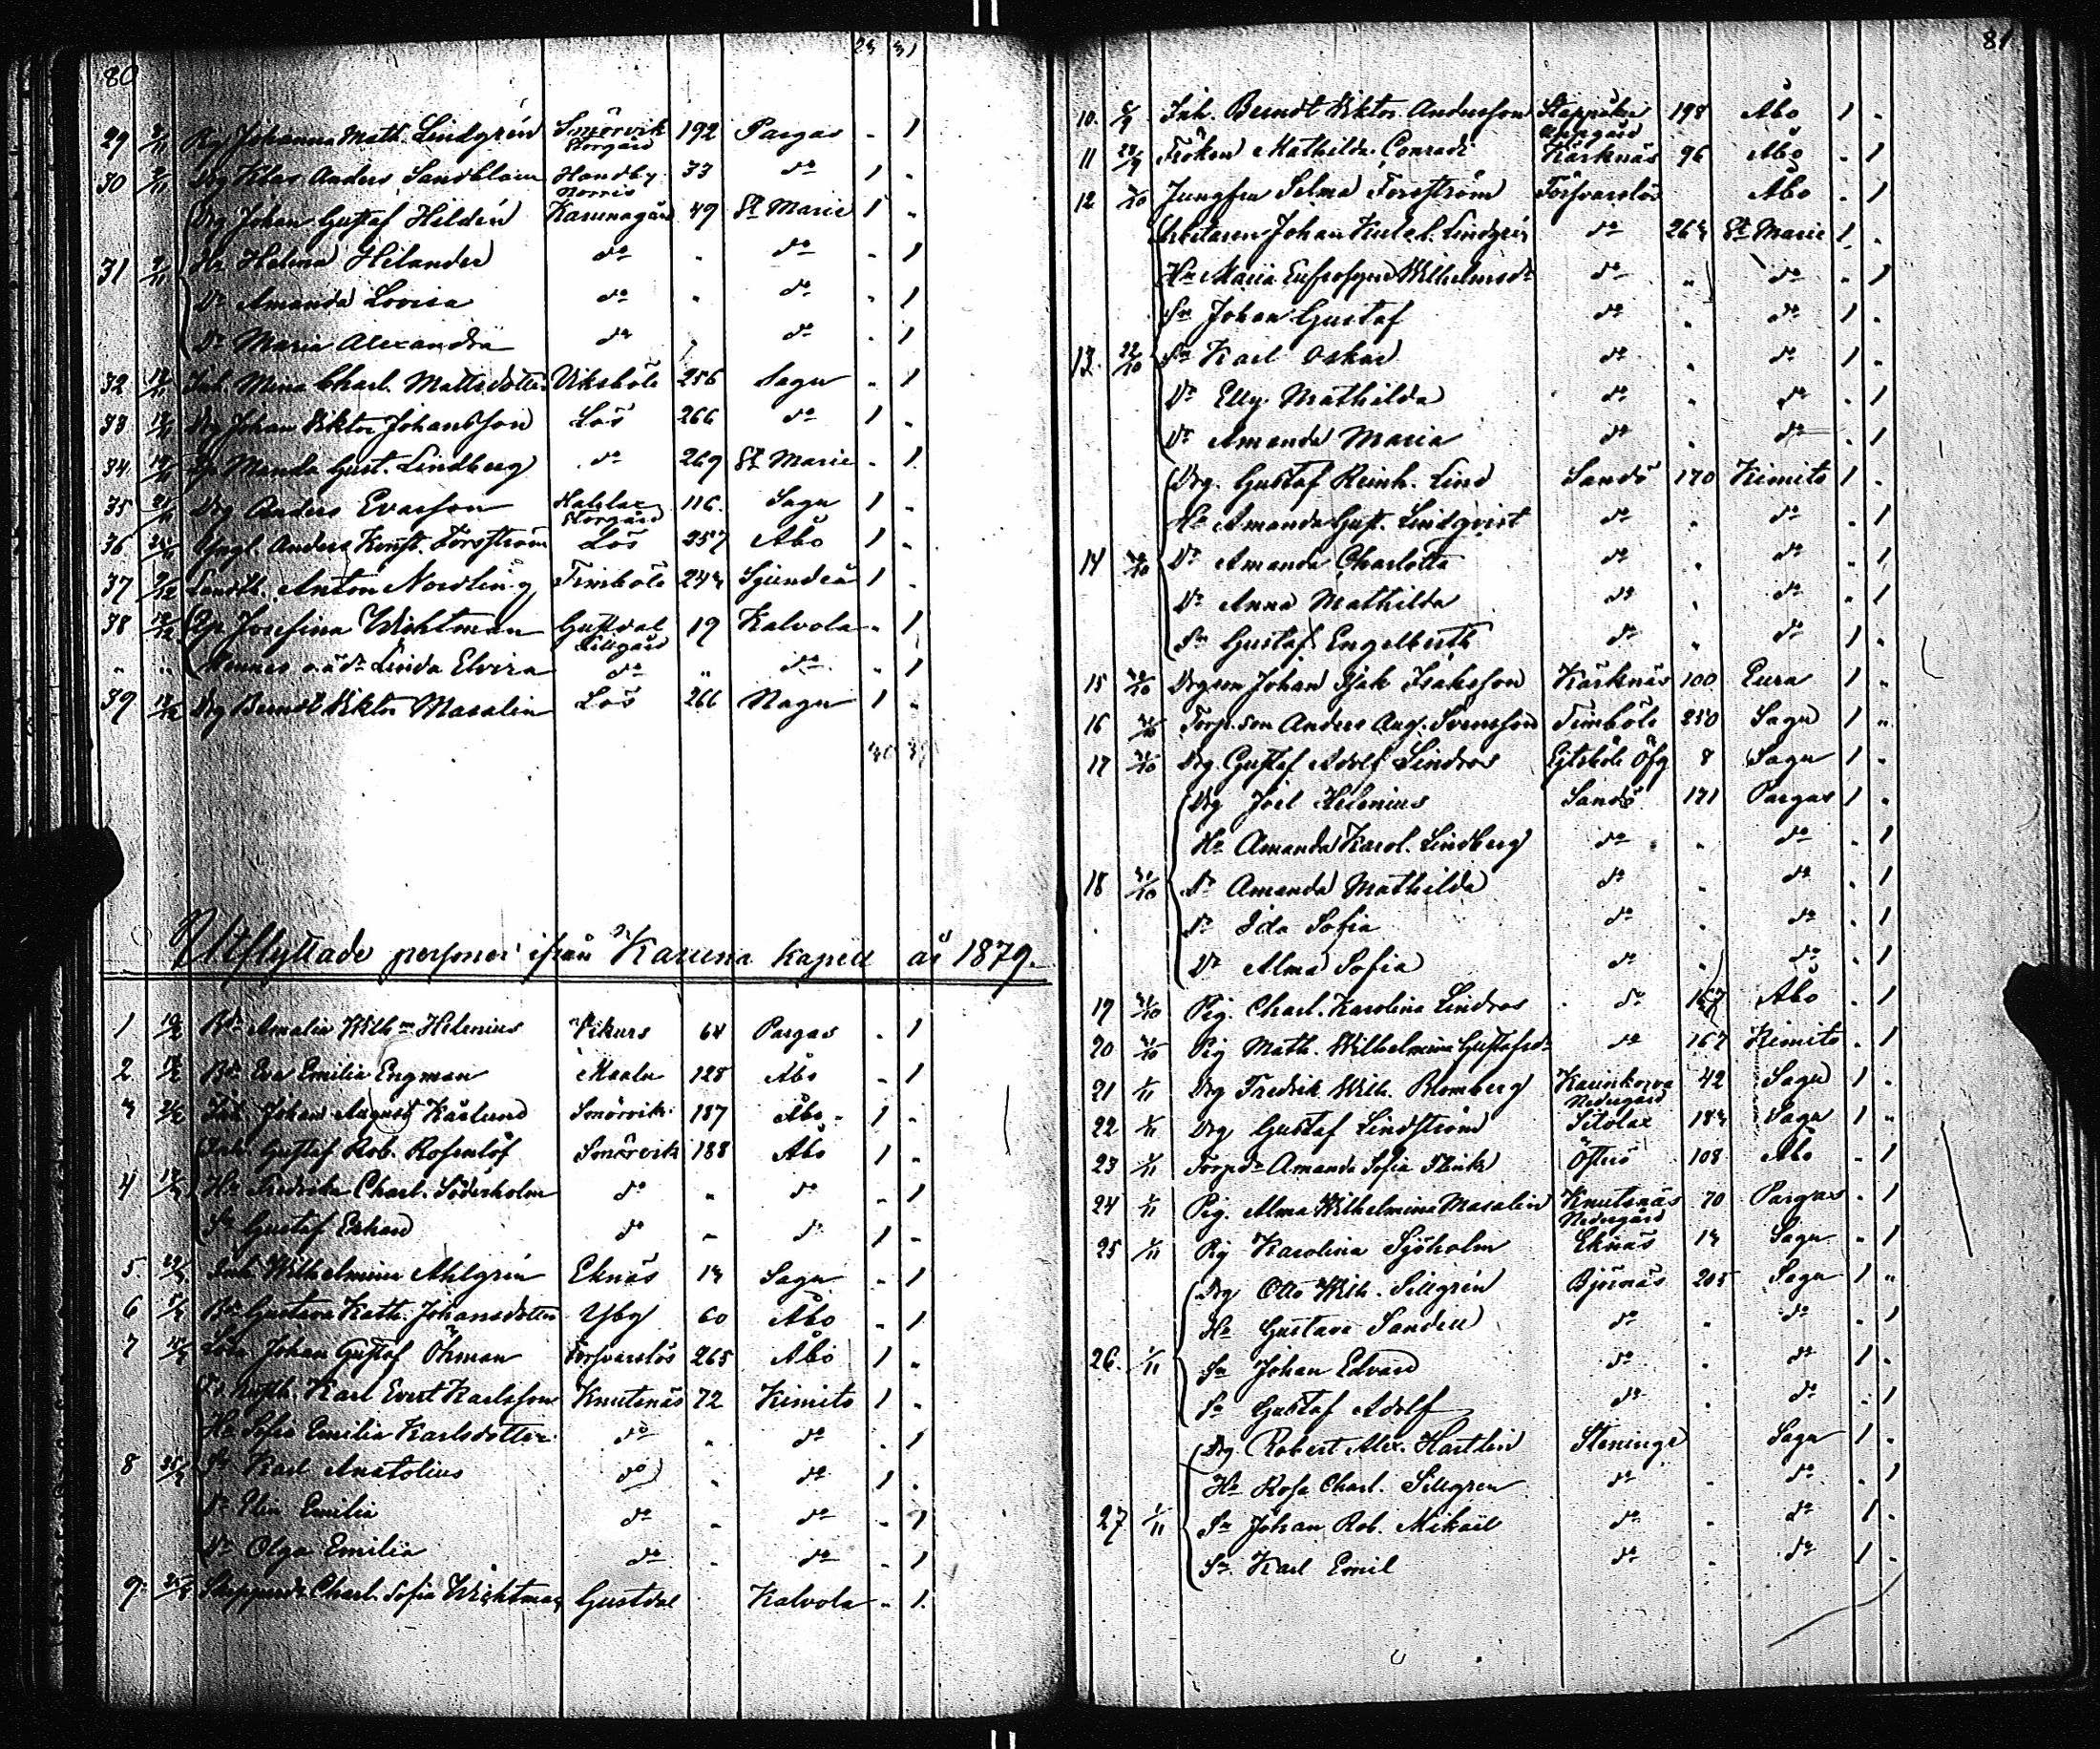 80
23 31
29 3/11 Pig Johanna Math. Lindgrén Smörvik Storgård 192 Pargas - 1
30 3/11 Drg Klas Anders Sandblom Handby Norris 33 do 1 -
Drg Johan Gustaf Hildén Karunagård 49 St Marie 1 -
31 9/11 Hu Helena Hilander do - do - 1
Dr Amanda Lovisa do - do - 1
Dr Maria Alexandra do - do - 1
32 Inh. Mina Charl. Mattsdotter Viksböle 256 Sagu - 1
33 Drg Johan Viktor Johansson Lös 266 do 1 -
34. Pig Manda Gust. Lindberg do 269 St Marie - 1
35 Drg Anders Evasson Halslax Storgård 116. Sagu 1 -
36 Yngl. Anders Konst. Forsström Lös 257 Åbo 1 -
37 Landtb. Anton Nordling Timböle 243 Sjundeå 1 -
38 Pig Josefina Wichtman Gustdal Lillgård 19 Kalvola - 1
" " Hennes o.ä. dr Linda Elvira do " do - 1
39 Drg Berndt Viktor Masalin Lös 266 Nagu 1 -
Utflyttade personer ifrån Karuna kapell år 1879.
1 Bd Amalia Wilhna Helenius Vikurs 64 Pargas - 1
2 Bd Eva Emilia Engman Maalu 128 Åbo - 1
3 Inh Johan August Käslund Smörvik 187 Åbo - 1 -
Inh. Gustaf Rob. Rosenlöf Smörvik 188 Åbo 1 -
4 Hu Fredrika Charl. Söderholm do " do - 1
Sn Gustaf Erhard do - do 1 -
5. Inh Wilhelmina Ahlgrén Eknäs 13 Sagu - 1
6 Bd Gustava Kath. Johansdotter Yby 60 Åbo - 1
7 Johan Gustaf Öhman Forsvarslös 265 Åbo 1 -
Karl Evert Karlsson Knutsnäs 72 Kimito 1 -
Hu Sofia Emilia Karlsdotter do - do - 1
8 Sn Karl Anatolius do - do 1 -
Dr Elin Emilia do - do - 1
Dr Olga Emilia do - do - 1
9. Skepparedr Charl. Sofia Wichtman Gustdal Kalvola - 1.
81
10. Inh. Berndt Viktor Andersson Uppgård 198 Åbo 1 -
11 Fröken Mathilda Conradi Kärknäs 96 Åbo - 1
12 Jungfru Selma Forsström Försvarslös Åbo - 1
Arbetaren Johan Lindgrén do 263 St Marie 1 -
Hu Maria Eufrosyne Wilhelmsdr do " do - 1
Sn Johan Gustaf do - do 1 -
13. 22/10 Sn Karl Oskar do - do 1 -
Dr Elly Mathilda do - do - 1
Dr Amanda Maria do - do - 1
Drg. Gustaf Reinh. Lind Sandö 170 Kimito 1 -
Hu Amanda Gust. Lindqvist do - do - 1
14 Dr Amanda Charlotta do - do - 1
Dr Anna Mathilda do - do - 1
Sn Gustaf Engelberth do - do 1 -
15 Drgson Johan Isak Isaksson Kärknäs 100 Eura 1 -
16 Torp.son Anders Aug. Svensson Timböle 250 Sagu 1 -
17 Drg Gustaf Adolf Lindros Öfg 8 Sagu 1 -
Drg Joel Helenius Sandö 171 Pargas 1 -
Hu Amanda Karol. Lindberg do - do - 1
18 31/10 Dr Amanda Mathilda do - do - 1
Dr Ida Sofia do - do - 1
Dr Alma Sofia do - do - 1
19 31/10 Pig. Charl. Karolina Lindros do 167 Åbo - 1
20 31/10 Pig Math. Wilhelmina Gustafsdr do 167 Kimito - 1
21 1/11 Drg Fredrik Wilh. Blomberg Nedergård 42 Sagu 1 -
22 1/11 Drg Gustaf Lindström Sitolax 183 Sagu 1 -
23 1/11 Torpdr Amanda Sofia Flink Österö 108 Åbo - 1
24 1/11 Pig. Alma Wilhelmina Masalin Knutsnäs Nedergård 70 Pargas - 1
25 1/11 Pig Karolina Sjöholm Eknäs 13 Sagu - 1
Drg Otto Wilh. Sillgrén Björnäs 205 Sagu 1 -
Hu Gustava Sandell do - do - 1
26. 1/11 Sn Johan Edvard do - do 1 -
Sn Gustaf Adolf do - do - 1
Drg Robert Alex. Hartlin Steninge Sagu 1 -
Hu Rosa Charl. Sillgren do - do - 1
27 1/11 Sn Johan Rob. Mikael do - do 1 -
Sn Karl Emil do - do 1 -